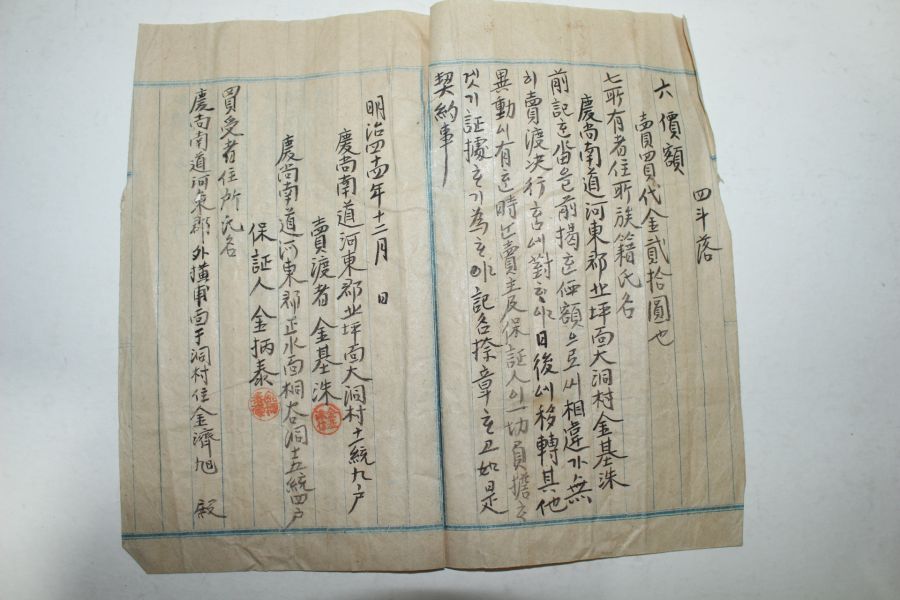 四斗落
六 價額
賣買代金貳拾圓也
七 所有者住所族籍氏名
慶尙南道河東郡北坪面大洞村金基洙
前記 畓은前揭 価額으로써相違가無
히賣渡决行 對 야日後에移轉其他
異動이有 時 賣主及保証人이一切負擔
것기証據 기爲 야記名捺章 고如是
契約事
明治四四年十二月 日
慶尙南道河東郡北坪面大洞村十一統九戶
賣渡者 金基洙
慶尙南道河東郡正水面桐谷洞十五統四戶
保証人 金炳泰
買受者住所氏名
慶尙南道河東郡外橫甫面于洞村住金濟旭 殿